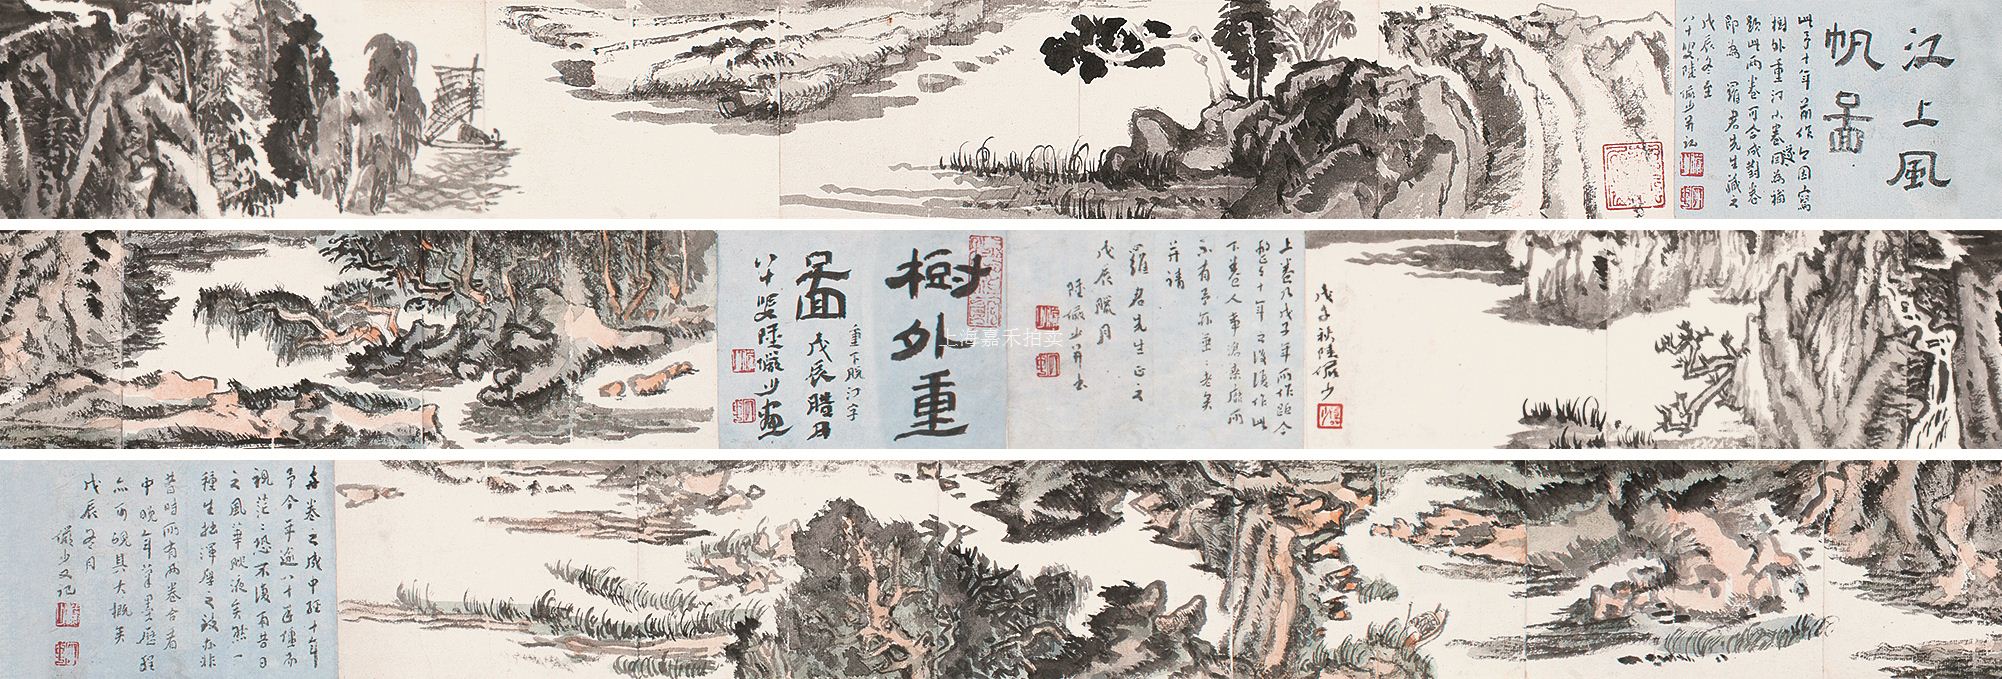 江上風
帆圖
此予十年前作今因寫
樹外重汀小卷因為補
題此兩卷可合成對卷
即為 羅君先生藏之
戊辰冬至
八十叟陸儼少并記
戊子秋陸儼少
上卷乃戊子年所作距今
十年又復作此
下卷人事滄桑感而
并請
羅君先生正之
戊辰臘月
陸儼少并書
樹外重
圖
重下脫汀字
戊辰腊月
八十叟陸儼少畫
上海嘉禾拍卖
卷之成中經十年
予今年逾八十
視茫々恐不復有昔日
之風華 矣然一
種生拙渾厚之致亦非
昔時所有兩卷合看
中晚年筆墨歷程
亦可覘其大概矣
戊辰冬月
儼少又記